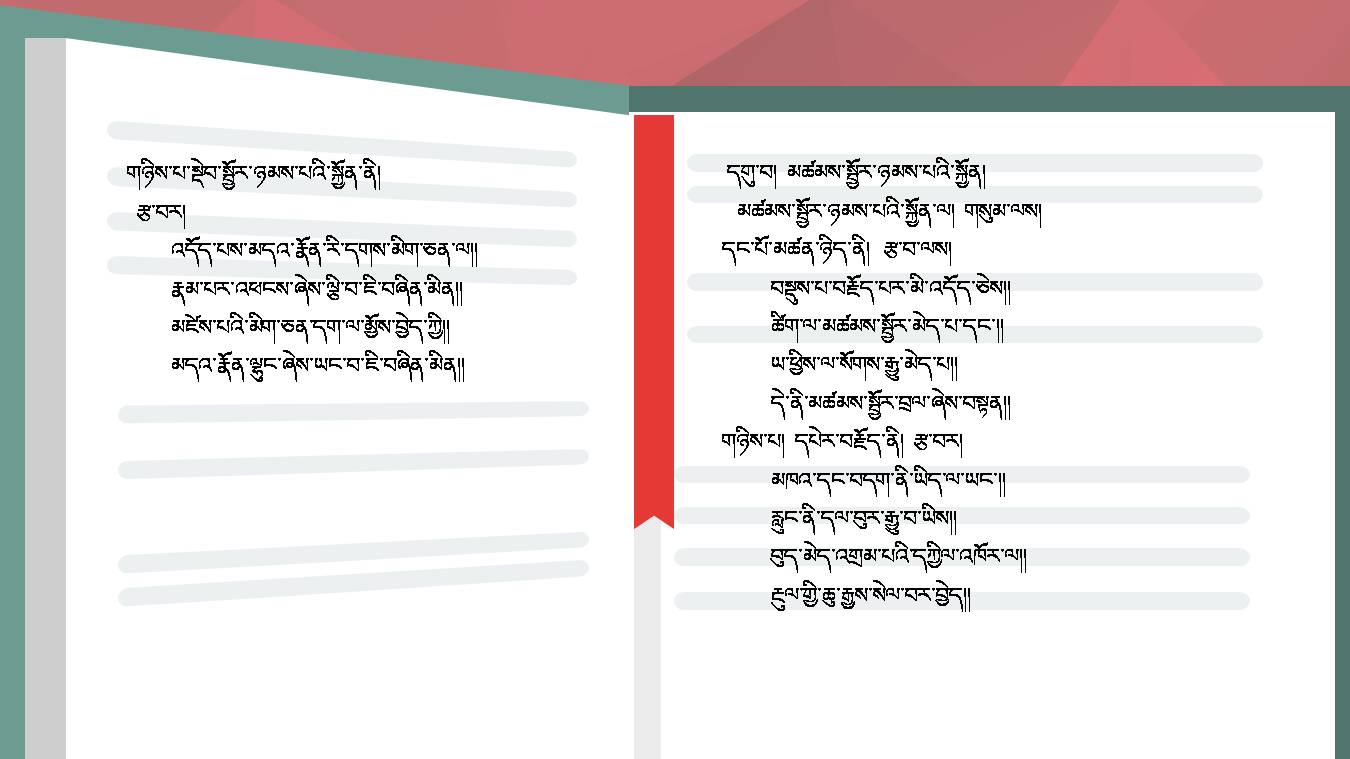 གཉིས་པ་སྡེབ་སྦྱོར་ཉམས་པའི་སྐྱོན་ནི།
རྩ་བར།
འདོད་པས་མདའ་རྣོན་རི་དགས་མིག་ཅན་ལ།།
རྣམ་པར་འཕངས་ཞེས་ལྕི་བ་ཇི་བཞིན་མིན།།
མཛེས་པའི་མིག་ཅན་དག་ལ་མྱོས་བྱེད་ཀྱི།།
མདའ་རྣོན་ལྷུང་ཞེས་ཡང་བ་ཇི་བཞིན་མིན།།
དགུ་བ། མཚམས་སྦྱོར་ཉམས་པའི་སྐྱོན།
མཚམས་སྦྱོར་ཉམས་པའི་སྐྱོན་ལ། གསུམ་ལས།
དང་པོ་མཚན་ཉིད་ནི། རྩ་བ་ལས།
བསྡུས་པ་བརྗོད་པར་མི་འདོད་ཅེས།།
ཚིག་ལ་མཚམས་སྦྱོར་མེད་པ་དང་།།
ཡ་ཕྱིས་ལ་སོགས་རྒྱུ་མེད་པ།།
དེ་ནི་མཚམས་སྦྱོར་བྲལ་ཞེས་བསྟན།།
གཉིས་པ། དཔེར་བརྗོད་ནི། རྩ་བར།
མཁའ་དང་བདག་ནི་ཡིད་ལ་ཡང་།།
རླུང་ནི་དལ་བུར་རྒྱུ་བ་ཡིས།།
བུད་མེད་འགྲམ་པའི་དཀྱིལ་འཁོར་ལ།།
རྔུལ་གྱི་ཆུ་རྒྱས་སེལ་བར་བྱེད།།